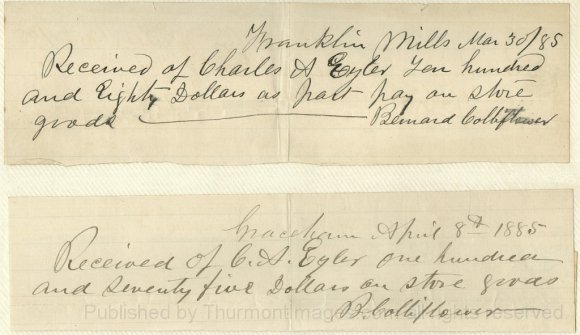 Franklin Mills Mar 30/85
Received of Charles A Eyler Ten hundred
and Eighty Dollars as part pay on store
goods Bernard Colliflower
Graceham April 8th 1885
Received of C. A. Eyler one hundred
and seventy five Dollars on store goods
B. Colliflower
Published by Thurmont Images. © All rights reserved